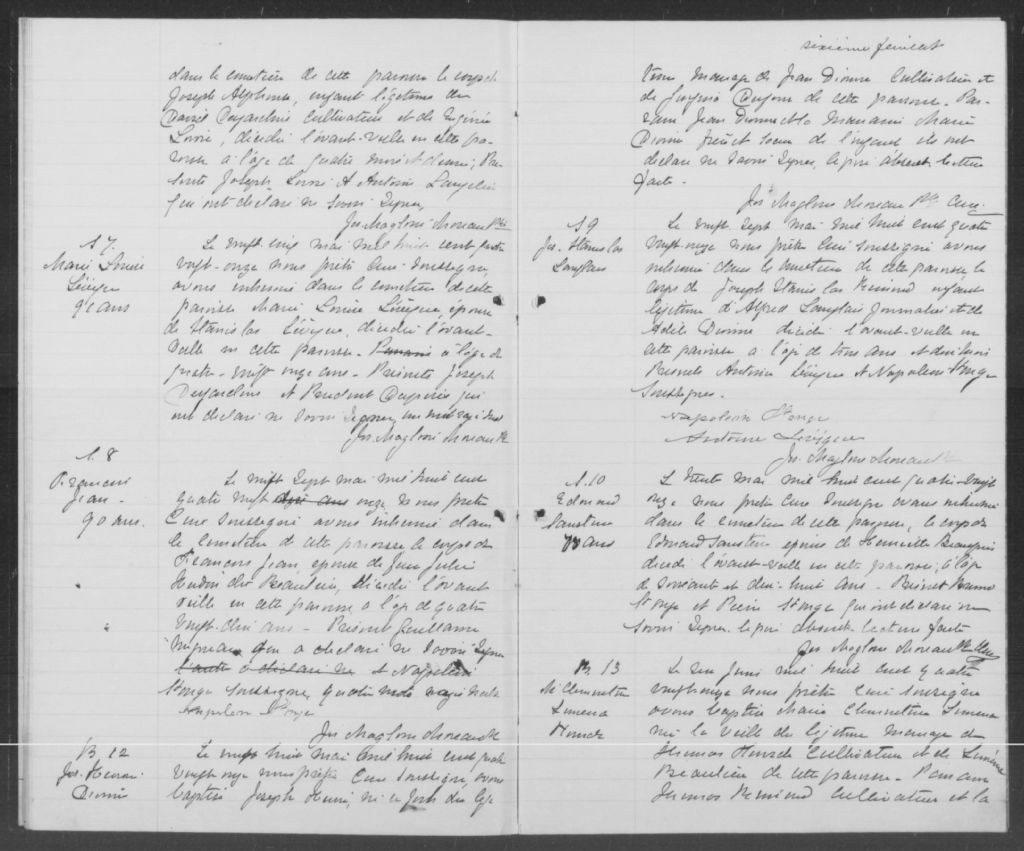 dans le cimetière de cette paroisse le corps de
Joseph Alphonse, enfant légitime de
David Desjardins Cultivateur et de
décédé l'avant-veille en cette pa-
roisse à l'âge de quatre mois et demi; Pré-
sents Joseph et Antoine
qui ont déclaré ne savoir signer
Jos Magloire Moreau Ptre
S 7.
Marie Louise
Lévêque
91 ans
Le vingt-cinq mai mil huit cent quatre
vingt-onze nous prêtre Curé soussigné
avons inhumé dans le cimetière de cette
paroisse Marie Louise Lévêque, épouse
de Stanislas Lévêque, décédée l'avant-
veille en cette paroisse à l'âge de
quatre-vingt onze ans. Présents Joseph
Desjardins et
ont déclaré ne savoir signer
Jos Magloire Moreau Ptre
S. 8
François
Jean
90 ans.
Le vingt sept mai mil huit cent
quatre vingt onze nous prêtre
Curé soussigné avons inhumé dans
le cimetière de cette paroisse le corps de
François Jean, époux de Julie
Hudon dit Beaulieu, décédé l'avant
veille en cette paroisse, à l'âge de quatre
vingt-dix ans - Présent Guillaume
Migneau qui a déclaré ne savoir signer
l'autre a déclaré ne et Napoléon
St onge soussigné, quatre mots rayés nuls
Napoléon St onge
Jos Magloire Moreau Ptre
B. 12
Jos. Henri
Dionne
Le vingt huit mai mil huit cent quatre
vingt-onze nous prêtre Curé soussigné, avons
baptisé Joseph Henri, né ce jour du légi
sixième feuillet
time mariage de Jean Dionne Cultivateur et
de de cette paroisse. Par-
rain Jean Dionne et la Marraine Marie
Dionne frère et soeur de l'enfant ils ont
déclaré ne savoir signer, le père absent lecture
faite.
Jos Magloire Moreau Ptre Curé
S 9
Jos. Stanislas
Langlais
Le vingt sept mai mil huit cent quatre
vingt-onze nous prêtre Curé soussigné avons
inhumé dans le cimetière de cette paroisse le
corps de Joseph Stanislas enfant
légitime d'Alfred Langlais Journalier et de
Adèle Dionne décédé l'avant-veille en
cette paroisse à l'âge de trois ans et
Présents Antoine Lévêque et Napoléon St onge
soussignés.
Napoléon St onge
Antoine Lévêque
Jos Magloire Moreau Ptre
S. 10
Edouard
ans
Le trente mai mil huit cent quatre-vingt
onze nous prêtre Curé soussigné avons inhumé
dans le cimetière de cette paroisse, le corps de
Edouard époux de Henriette
décédé l'avant-veille en cette paroisse, à l'âge
de soixante et dix-huit ans. Présents Bruno
St onge et Pierre St onge qui ont déclaré ne
savoir signer. absent. lecture faite
Jos Magloire Moreau Ptre Curé
B. 13
M Clementine
Limena
Le un Juin mil huit cent quatre
vingt-onze nous prêtre Curé soussigné
avons baptisé Marie Clementine Limena
née la veille du légitime mariage de
Cultivateur et de
Beaulieu de cette paroisse - Parrain
Cultivateur et la